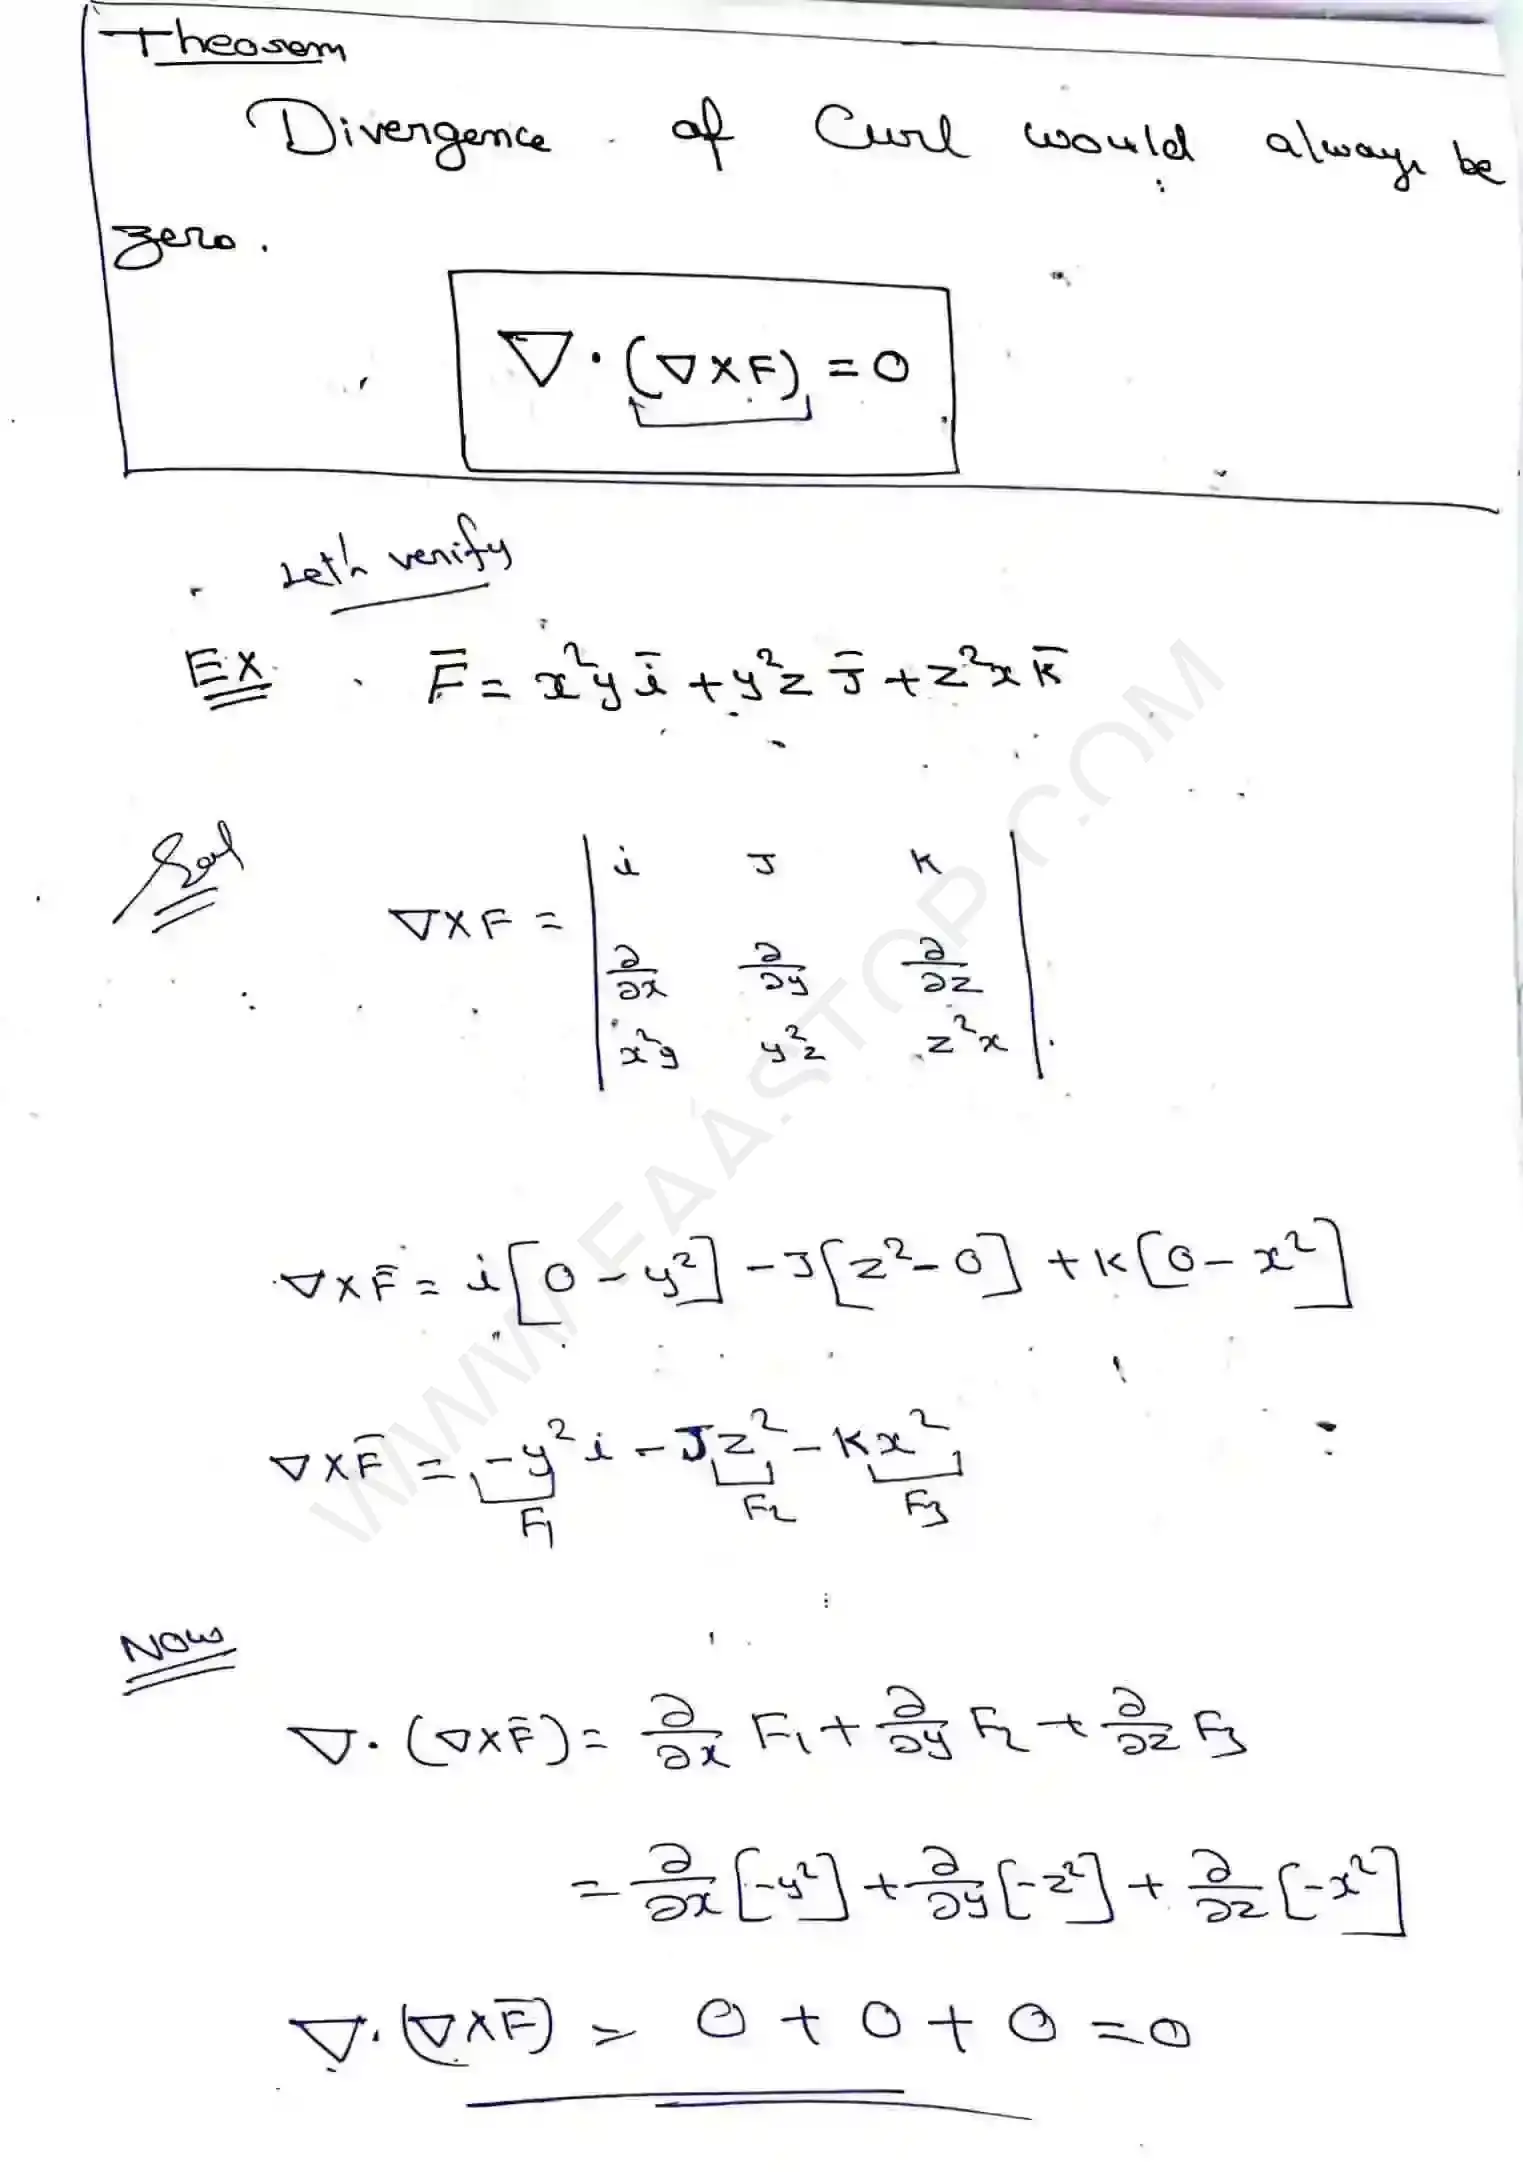 Theorem
Divergence of Curl would always be
zero.
∇·(∇×F) = 0
Let's verify
EX. F̄ = x²y ī + y²z J̄ + z²x K̄
Sol
∇×F = | i J K |
| ∂/∂x ∂/∂y ∂/∂z |
| x²y y²z z²x |
∇×F̄ = i[0 - y²] - J[z² - 0] + K[0 - x²]
∇×F̄ = -y² i - Jz² - Kx²
F₁ F₂ F₃
Now
∇·(∇×F̄) = ∂/∂x F₁ + ∂/∂y F₂ + ∂/∂z F₃
= ∂/∂x [-y²] + ∂/∂y [-z²] + ∂/∂z [-x²]
∇·(∇×F̄) = 0 + 0 + 0 = 0
WWW.FAASTOP.COM